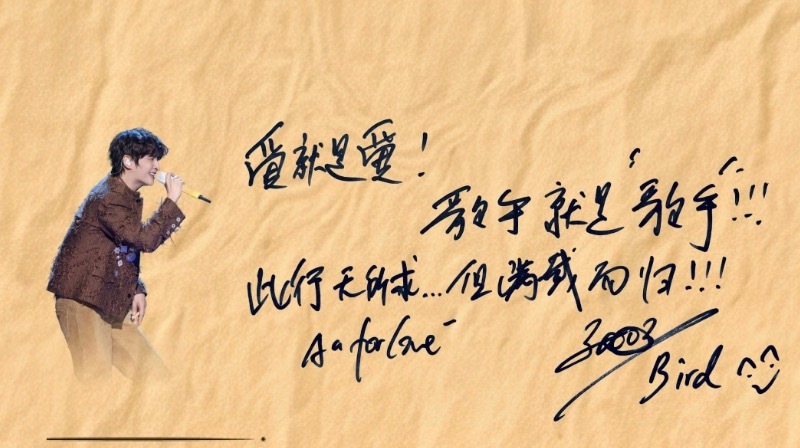 爱就是爱！
歌手就是“歌手”!!!
此行无所求...但满载而归!!!
A a for Love
Bird